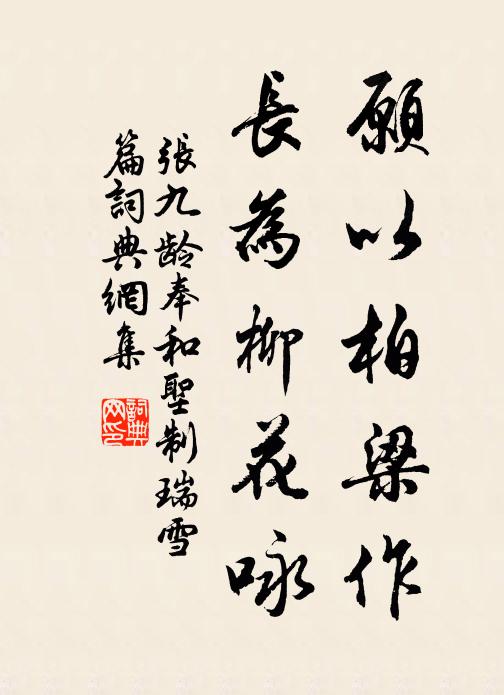 願以柏梁作
長為柳花咏
張九龄奉和聖制瑞雪
篇詞典網集
詞典
网印